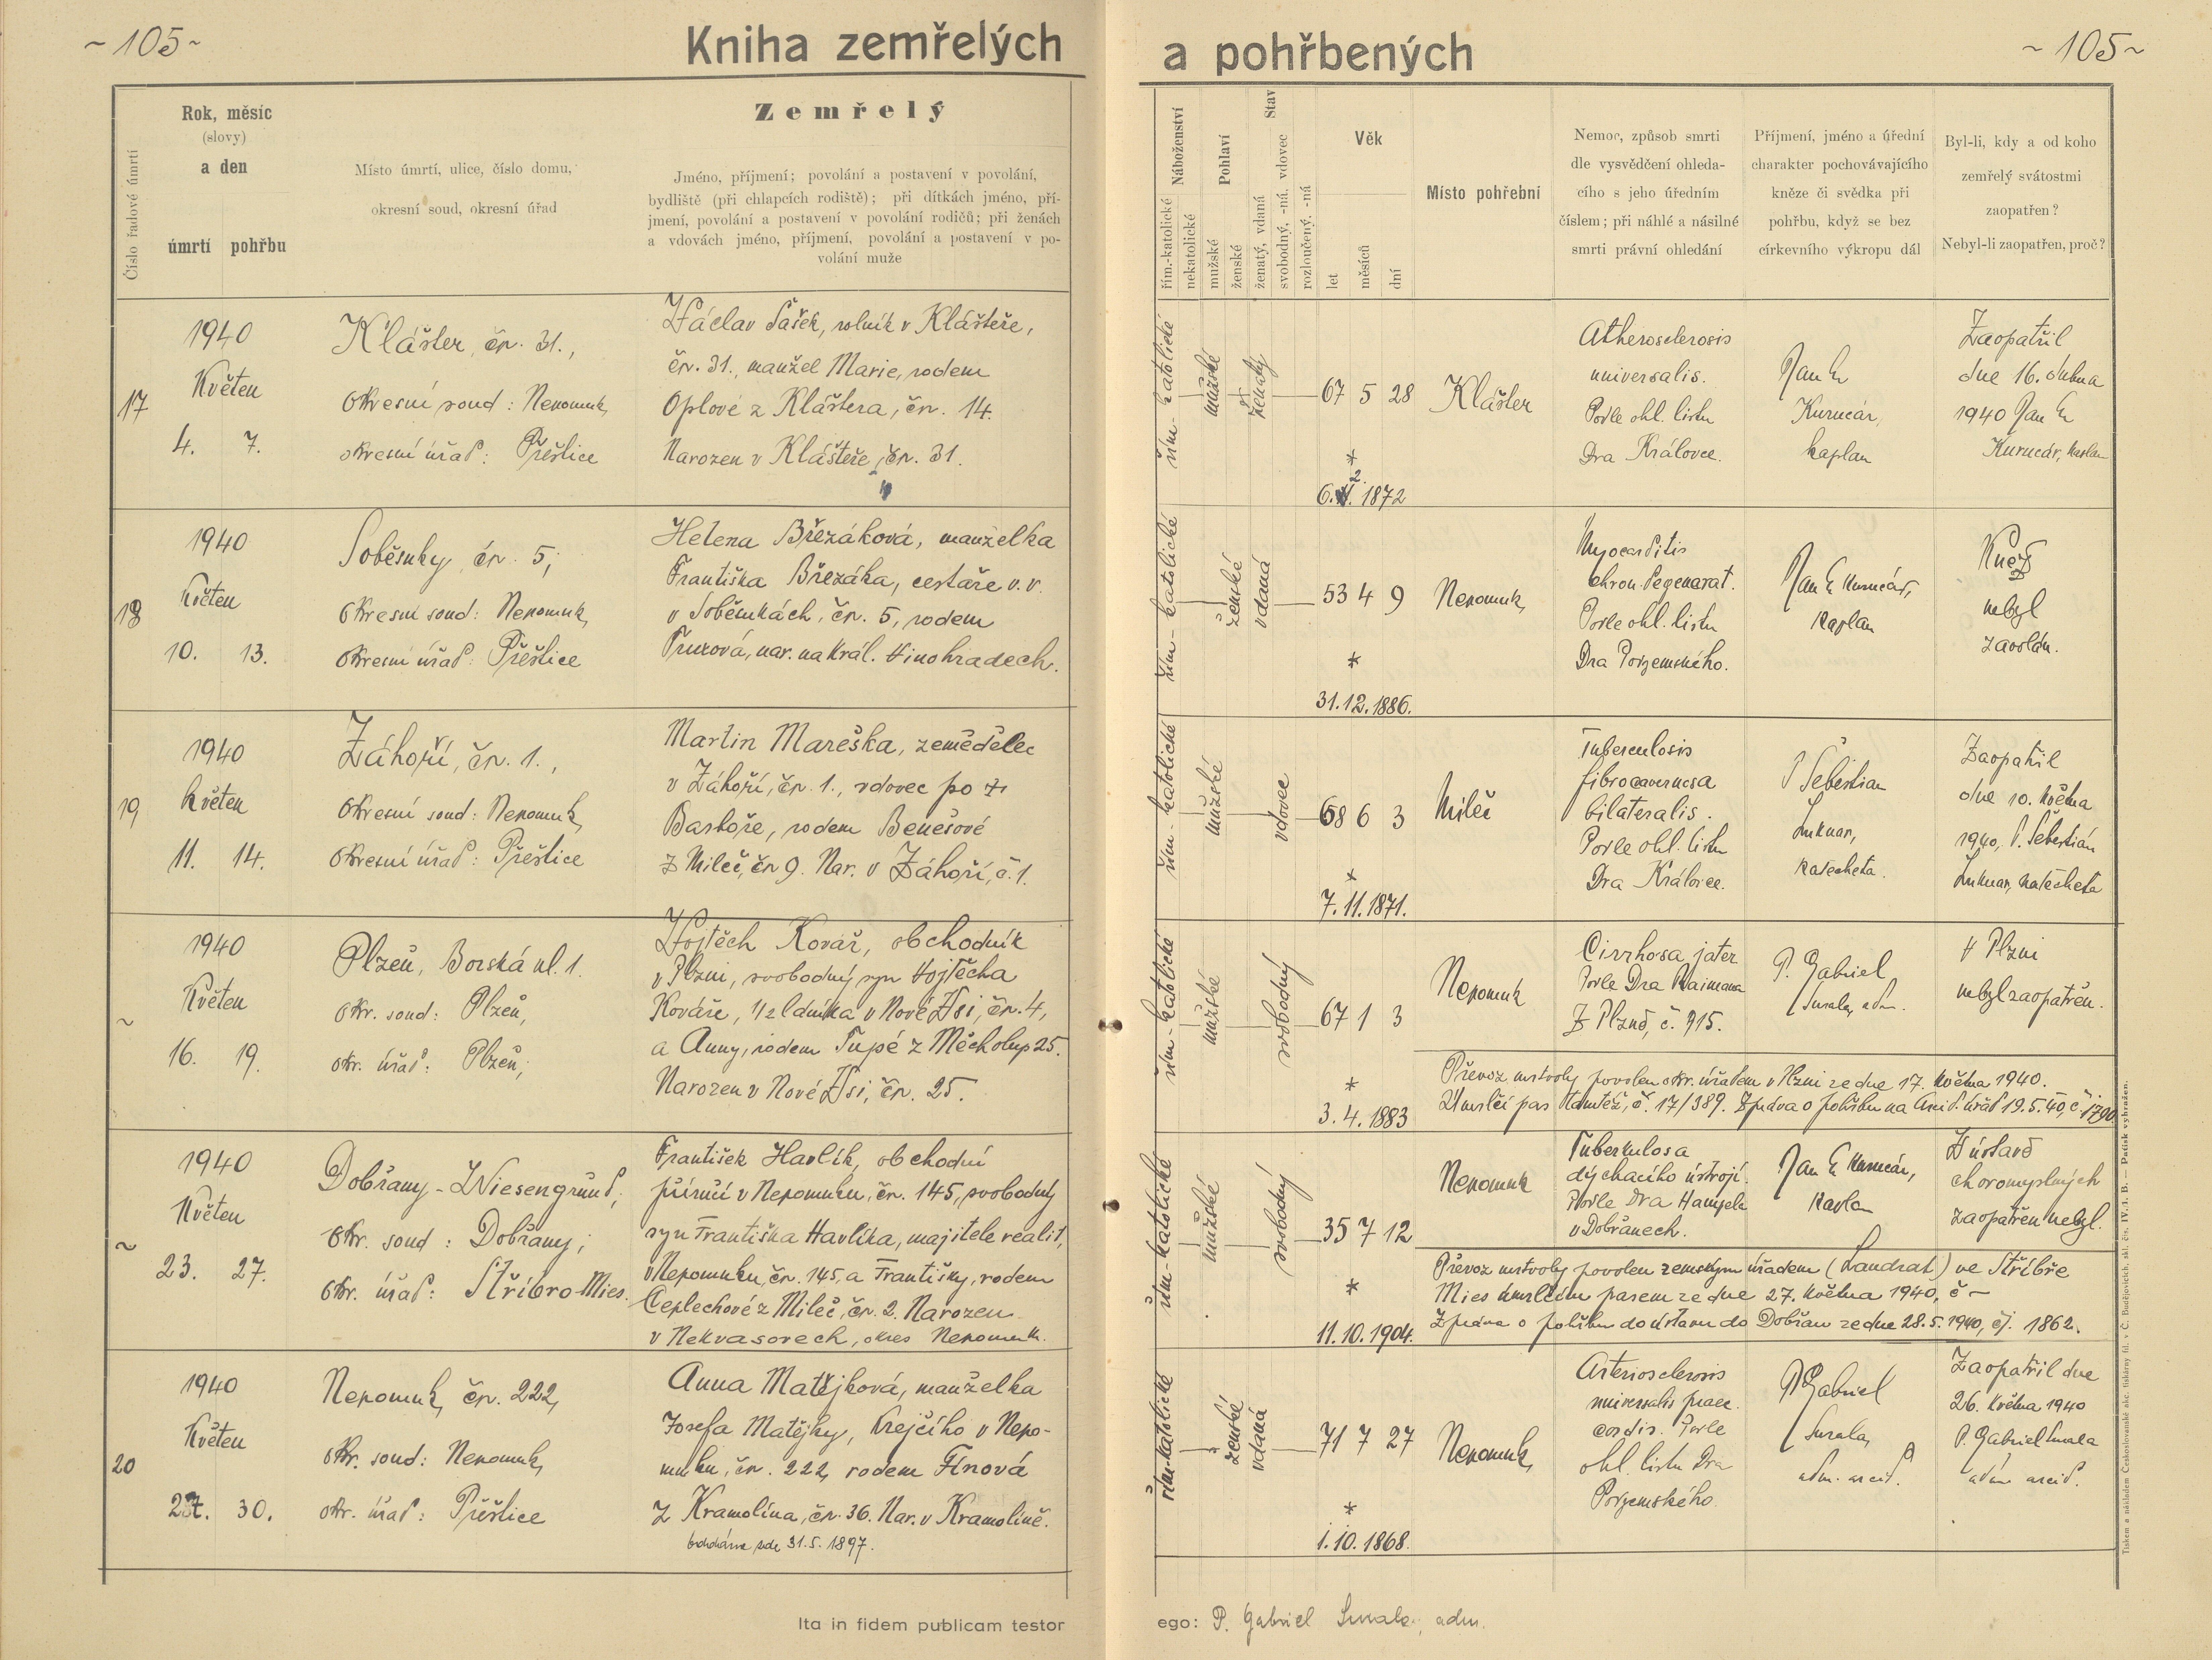 ~ 105 ~
Kniha zemřelých
a pohřbených
~ 105 ~
Číslo řadové úmrtí
Rok, měsíc
(slovy)
a den
úmrtí pohřbu
Místo úmrtí, ulice, číslo domu,
okresní soud, okresní úřad
Zemřelý
Jméno, příjmení; povolání a postavení v povolání,
bydliště (při chlapcích rodiště); při dítkách jméno, pří-
jmení, povolání a postavení v povolání rodičů; při ženách
a vdovách jméno, příjmení, povolání a postavení v po-
volání muže
Náboženství
řím.-katolické
nekatolické
Pohlaví
mužské
ženské
Stav
ženatý, vdaná
svobodný, -ná, vdovec
rozloučený, -ná
Věk
let
měsíců
dní
Místo pohřební
Nemoc, způsob smrti
dle vysvědčení ohleda-
cího s jeho úředním
číslem; při náhlé a násilné
smrti právní ohledání
Příjmení, jméno a úřední
charakter pochovávajícího
kněze či svědka při
pohřbu, když se bez
církevního výkropu dál
Byl-li, kdy a od koho
zemřelý svátostmi
zaopatřen?
Nebyl-li zaopatřen, proč?
17
1940
Květen
4. 7.
Klášter, čp. 31.,
Okresní soud: Nepomuk,
okresní úřad: Přeštice
Václav Šašek, rolník v Klášteře,
čp. 31., manžel Marie, rodem
Oplové z Kláštera, čp. 14.
Narozen v Klášteře, čp. 31.
řím-katolické
mužské
ženatý
67 5 28
*
6. 1872
Klášter
Atherosclerosis
universalis.
Podle ohl. listu
Dra Královce.
Jan Ev.
Kurucár,
kaplan
Zaopatřil
dne 16. dubna
1940 Jan Ev.
Kurucár, kaplan
18
1940
Květen
10. 13.
Soběsuky, čp. 5,
Okresní soud: Nepomuk,
Okresní úřad: Přeštice
Helena Březáková, manželka
Františka Březáka, cestáře v. v.
v Soběsukách, čp. 5, rodem
nar. na Král. Vinohradech.
řím-katolické
ženské
vdaná
53 4 9
*
31.12.1886.
Nepomuk,
Myocarditis
chron. degenerat.
Podle ohl. listu
Dra Podzemského.
Jan Ev. Kurucár,
kaplan
Kněz
nebyl
zavolán.
19
1940
květen
11. 14.
Záhoří, čp. 1.,
Okresní soud: Nepomuk,
Okresní úřad: Přeštice
Martin Mareška, zemědělec
v Záhoří, čp. 1., vdovec po †
Barboře, rodem Benešové
z Milče, čp 9. Nar. v Záhoří, č. 1.
řím-katolické
mužské
vdovec
68 6 3
*
7. 11. 1871.
Mileč
Tuberculosis
fibrocavernosa
bilateralis.
Podle ohl. listu
Dra Královce.
P. Šebestian
katecheta.
Zaopatřil
dne 10. května
1940, P. Šebestián
katecheta
~
1940
Květen
16. 19.
Plzeň, Borská ul. 1.
okr. soud: Plzeň,
okr. úřad: Plzeň,
Vojtěch Kovář, obchodník
v Plzni, svobodný syn Vojtěcha
Kováře, 1/2 láníka v Nové Vsi, čp. 4,
a Anny, rodem Tupé z Měcholup 25.
Narozen v Nové Vsi, čp. 25.
řím-katolické
mužské
svobodný
67 1 3
*
3. 4. 1883
Nepomuk
Cirrhosa jater
Podle Dra Raimana
Z Plzně, č. 915.
P. Gabriel
adm.
V Plzni
nebyl zaopatřen.
Převoz mrtvoly povolen okr. úřadem v Plzni ze dne 17. května 1940.
Umrlčí pas tamtéž, č. 17/389. Zpráva o pohřbu na úřad 19.5.40, č.
~
1940
Květen
23. 27.
Dobřany - Wiesengrund,
Okr. soud: Dobřany,
Okr. úřad: Stříbro Mies.
František Havlík, obchodní
příručí v Nepomuku, čp. 145, svobodný
syn Františka Havlíka, majitele realit,
v Nepomuku, čp. 145, a Františky, rodem
Ceplechové z Milče, čp. 2. Narozen
v Nekvasovech, okres Nepomuk.
řím-katolické
mužské
svobodný
35 7 12
*
11. 10. 1904.
Nepomuk
Tuberkulosa
dýchacího ústrojí.
Podle Dra
v Dobřanech.
Jan Ev. Kurucár,
kaplan
V ústavě
choromyslných
zaopatřen nebyl.
Převoz mrtvoly povolen zemským úřadem (Landrat) ve Stříbře
Mies umrlčím pasem ze dne 27. května 1940, č –
Zpráva o pohřbu do ústavu do Dobřan ze dne 28.5.1940, čj. 1862.
20
1940
Květen
27. 30.
Nepomuk, čp. 222,
Okr. soud: Nepomuk,
okr. úřad: Přeštice
Anna Matějková, manželka
Josefa Matějky, krejčího v Nepo-
muku, čp. 222, rodem Fínová
z Kramolína, čp. 36. Nar. v Kramolíně.
31.5. 1897.
řím-katolické
ženské
vdaná
71 7 27
*
1. 10. 1868.
Nepomuk,
Arteriosclerosis
universalis praec.
cordis. Podle
ohl. listu Dra
Podzemského.
P. Gabriel
adm. arcid.
Zaopatřil dne
26. května 1940
P. Gabriel
adm. arcid.
Ita in fidem publicam testor
ego: P. Gabriel adm.
Tiskem a nákladem Českoslovanské akc. tiskárny fil. v Č. Budějovicích, skl. čís. IV.-1. B. — Patisk vyhražen.